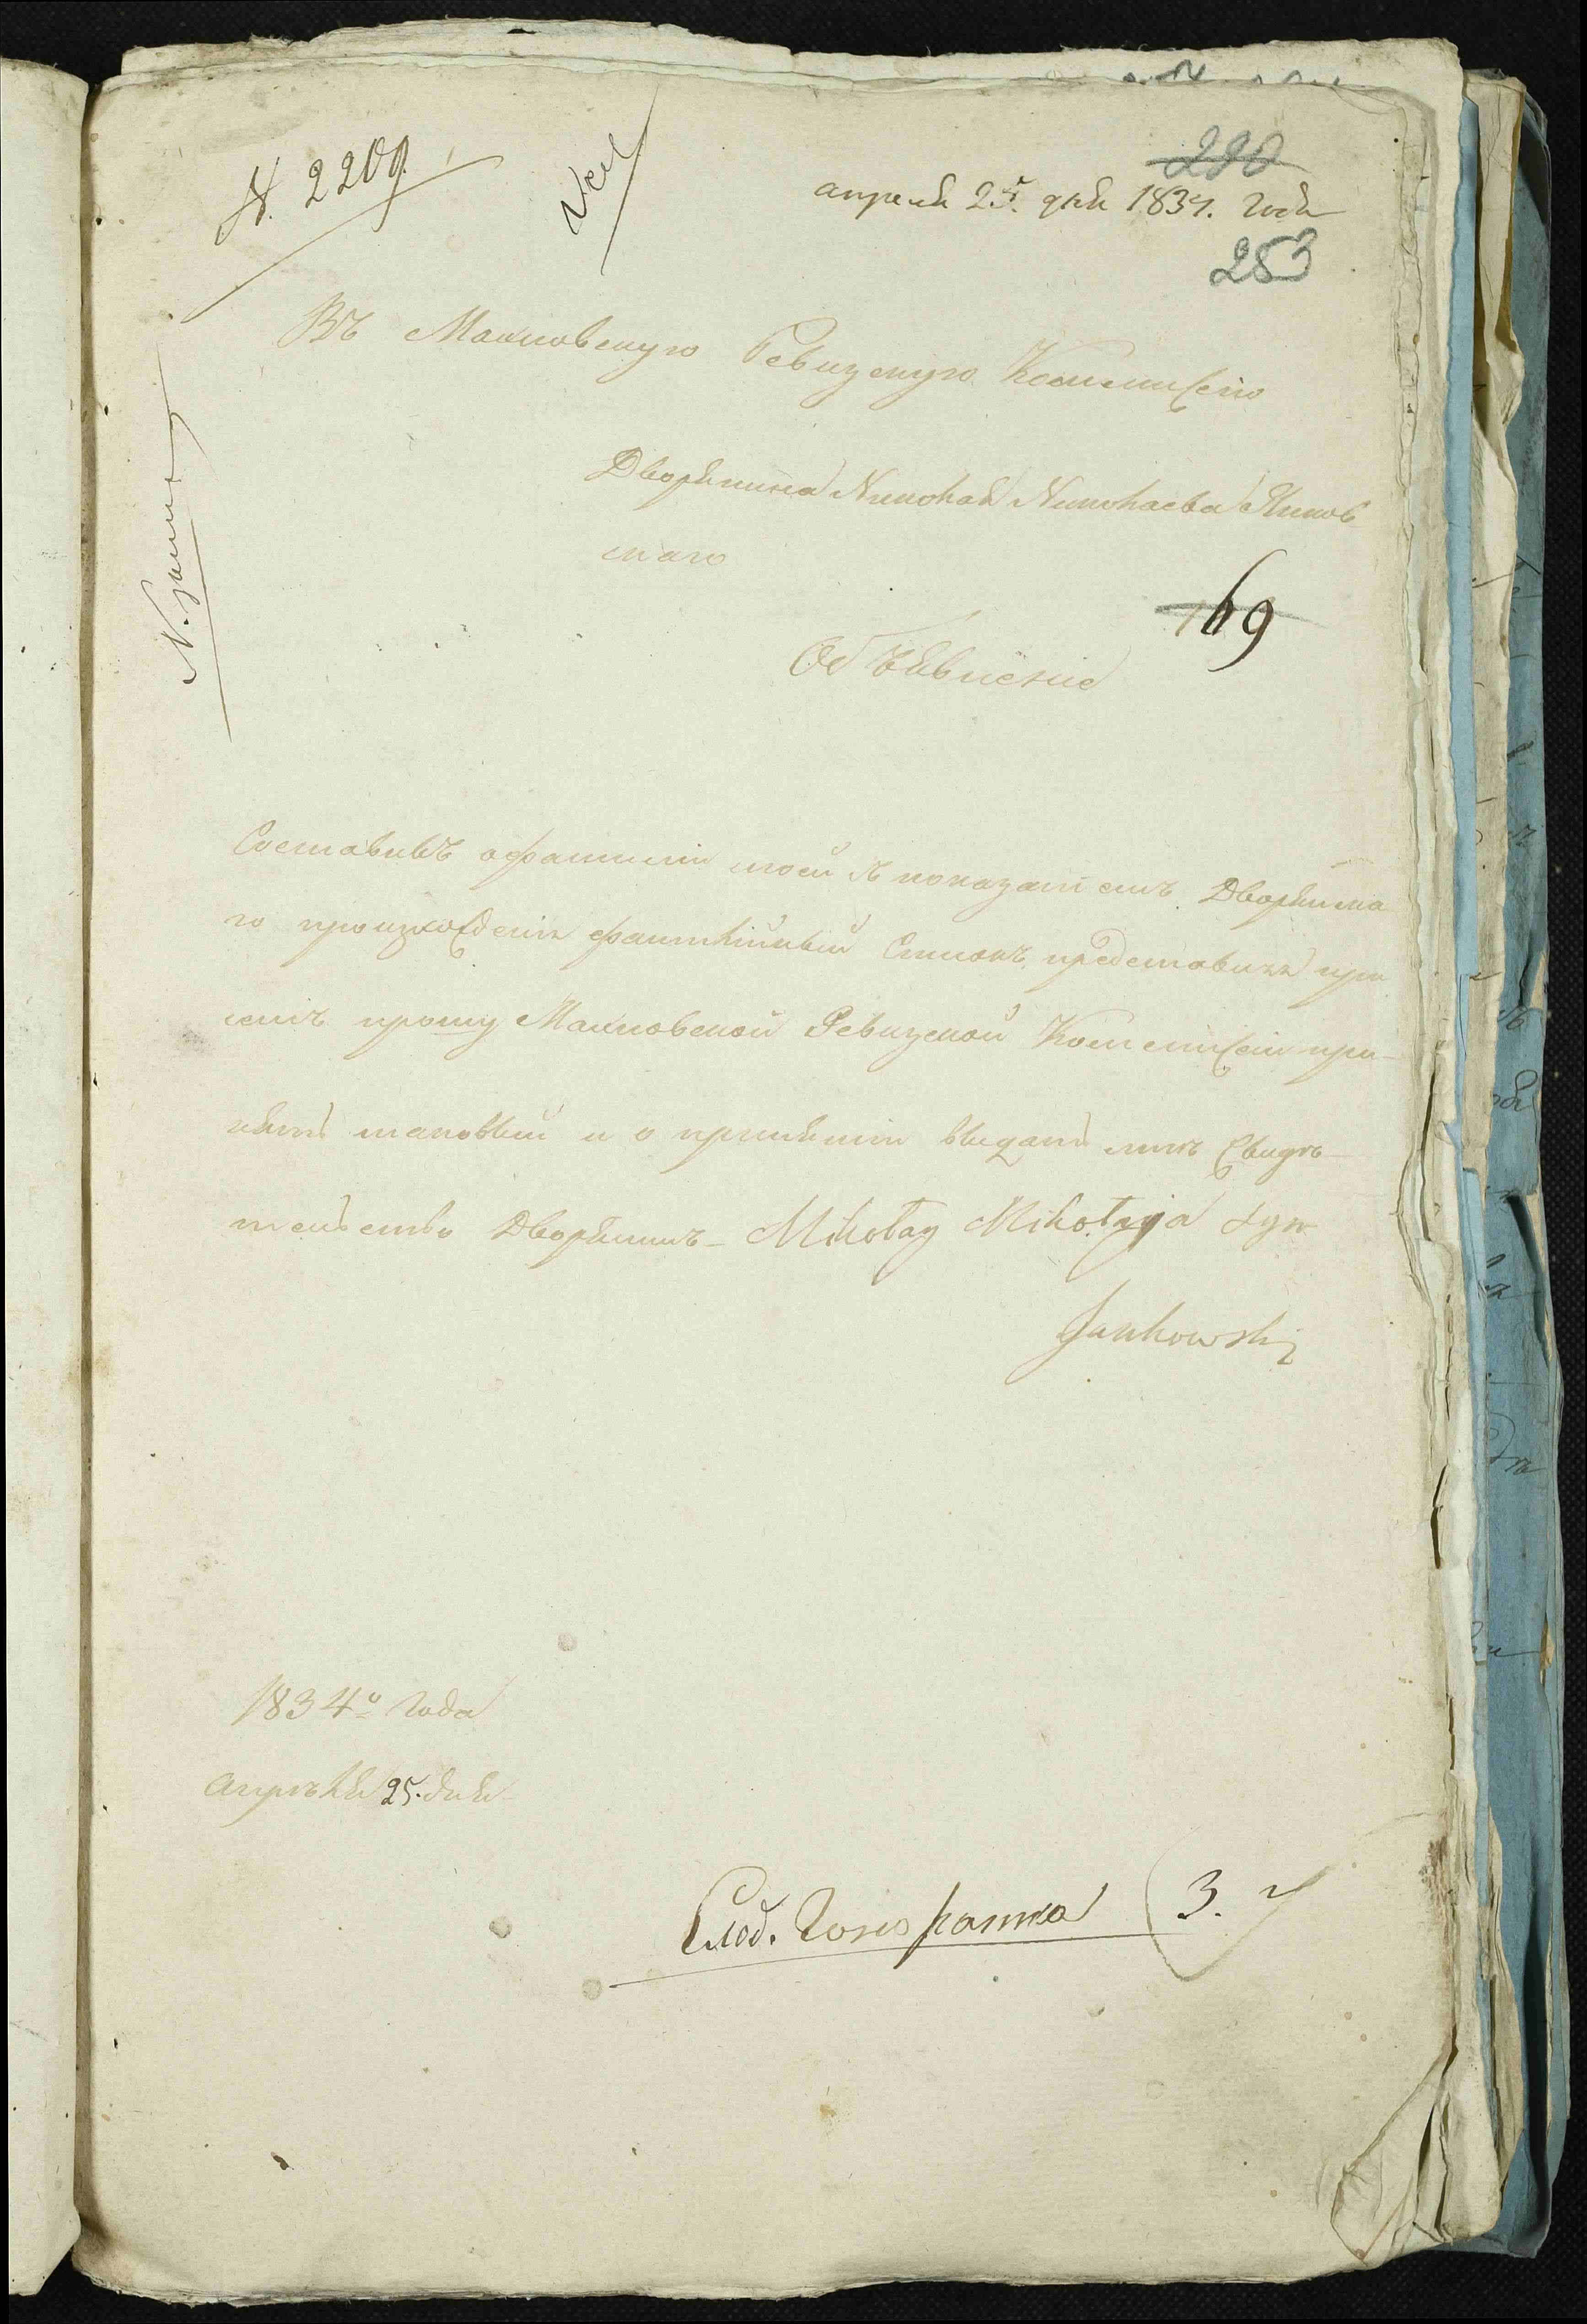 N. 2209.
290
апреля 25. дня 1834. года
253
Въ Махновскую Ревизкую Коммиссію
Дворянина Николая Николаева Янков
скаго
169
Объявленіе
N. запис
Составивъ о фамиліи моей съ показаніемъ Дворянска
го произхожденія фамилійный Списокъ представляя при
семъ прошу Махновской Ревизской Коммиссіи при-
нять таковый и о принятіи выдать мнѣ Свидѣ-
тельство Дворянинъ - Mikołay Mikołaja syn
Jankowski
1834º года
Апрѣля 25. дня
Слод. 3.